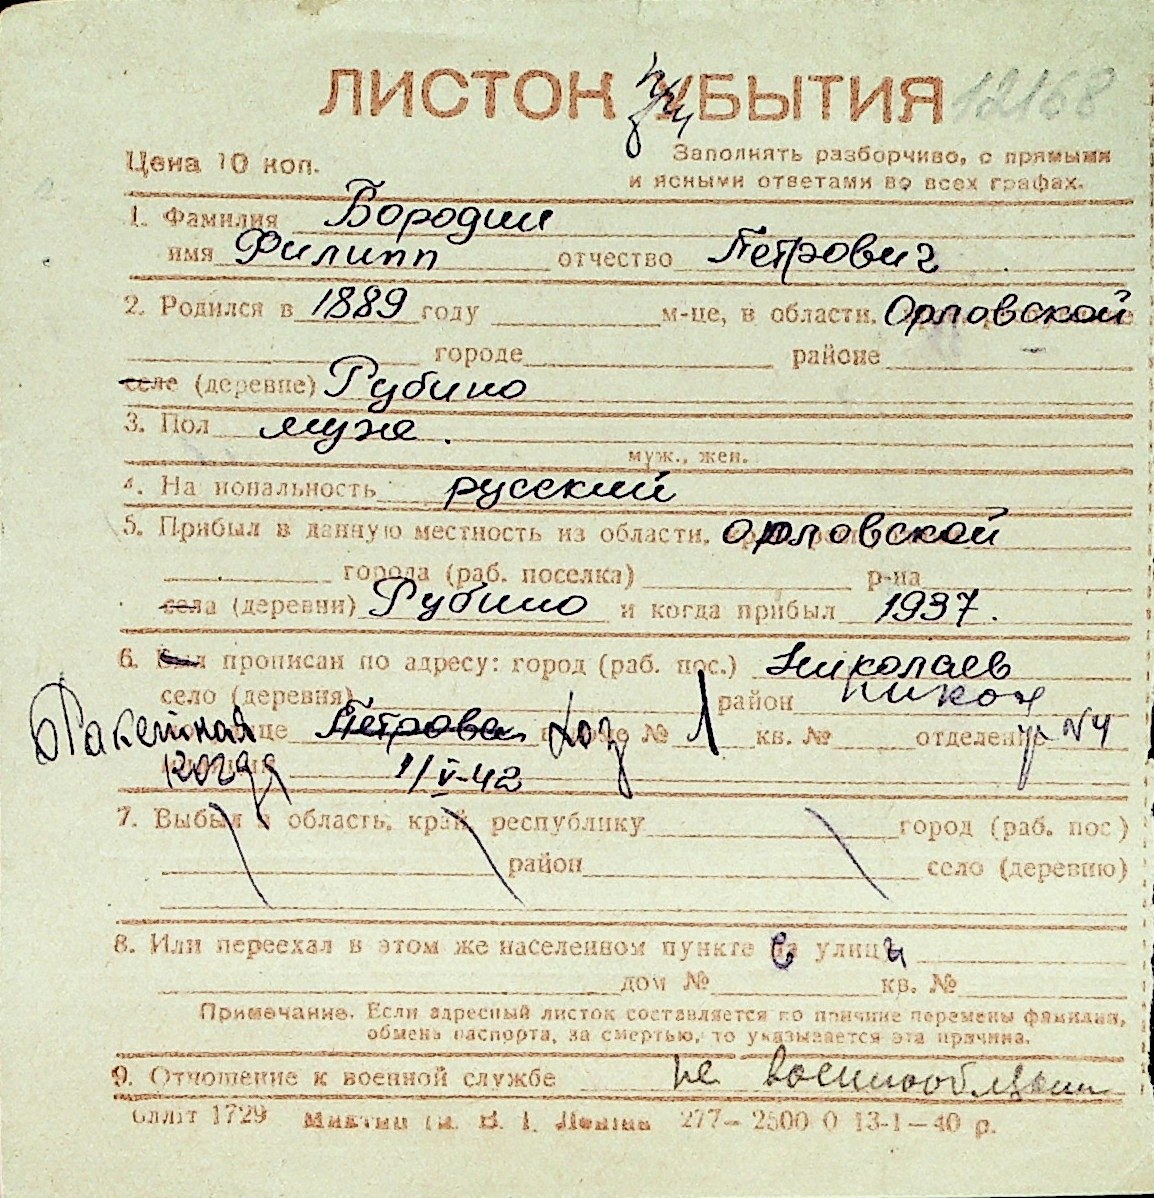 ЛИСТОК УБЫТИЯ 12168
Цена 10 коп.
Заполнять разборчиво, с прямыми
и ясными ответами во всех графах.
1. Фамилия Бородин
имя Филипп отчество Петрович
2. Родился в 1889 году м-це, в области, Орловской
городе районе
селе (деревне) Рубино
3. Пол муже.
муж., жен.
4. На иональность русский
5. Прибыл в данную местность из области, Орловской
города (раб. поселка) р-на
села (деревни) Рубино и когда прибыл 1937.
6. Был прописан по адресу: город (раб. пос.) Николаев
село (деревня) район
Петрова № 1 кв. № отделение № 4
когда 1/V-42
7. Выбыл в область, край, республику город (раб. пос.)
район село (деревню)
8. Или переехал в этом же населенном пункте в улицы
дом № кв. №
Примечание. Если адресный листок составляется по причине перемены фамилии,
обмена паспорта, за смертью, то указывается эта причина.
9. Отношение к военной службе не военнообязан
1729 277—2500 0 13-1—40 р.